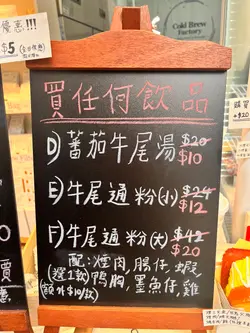 優惠!!!
$5
Cold Brew
Factory
買任何飲品
D) 蕃茄牛尾湯 $20
$10
E) 牛尾通粉(小) $24
$12
F) 牛尾通粉(大) $42
$20
配:煙肉,腸仔,蝦
(選1款)鴨胸,墨魚仔,雞
(額外$10/款)